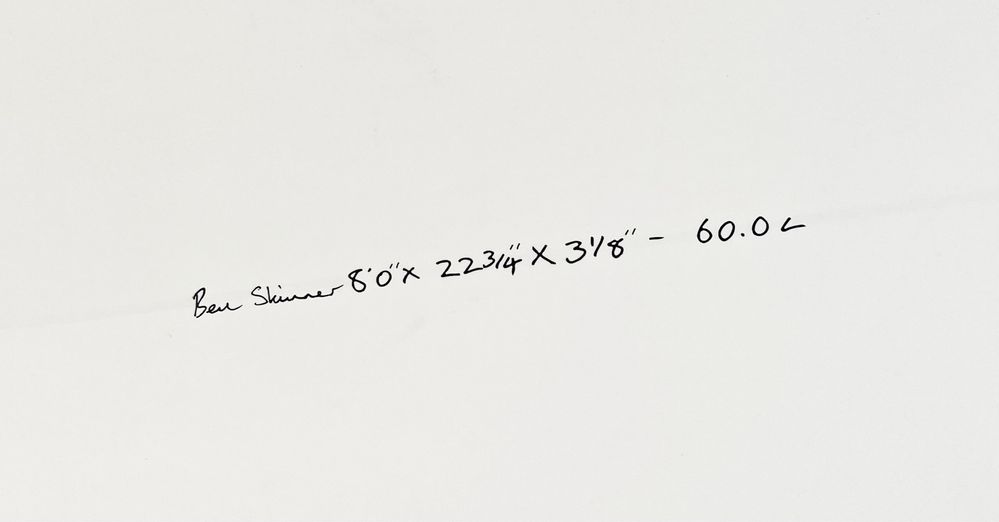 Ben Skinner 8'0" x 22 3/4" x 3 1/8" - 60.0 L